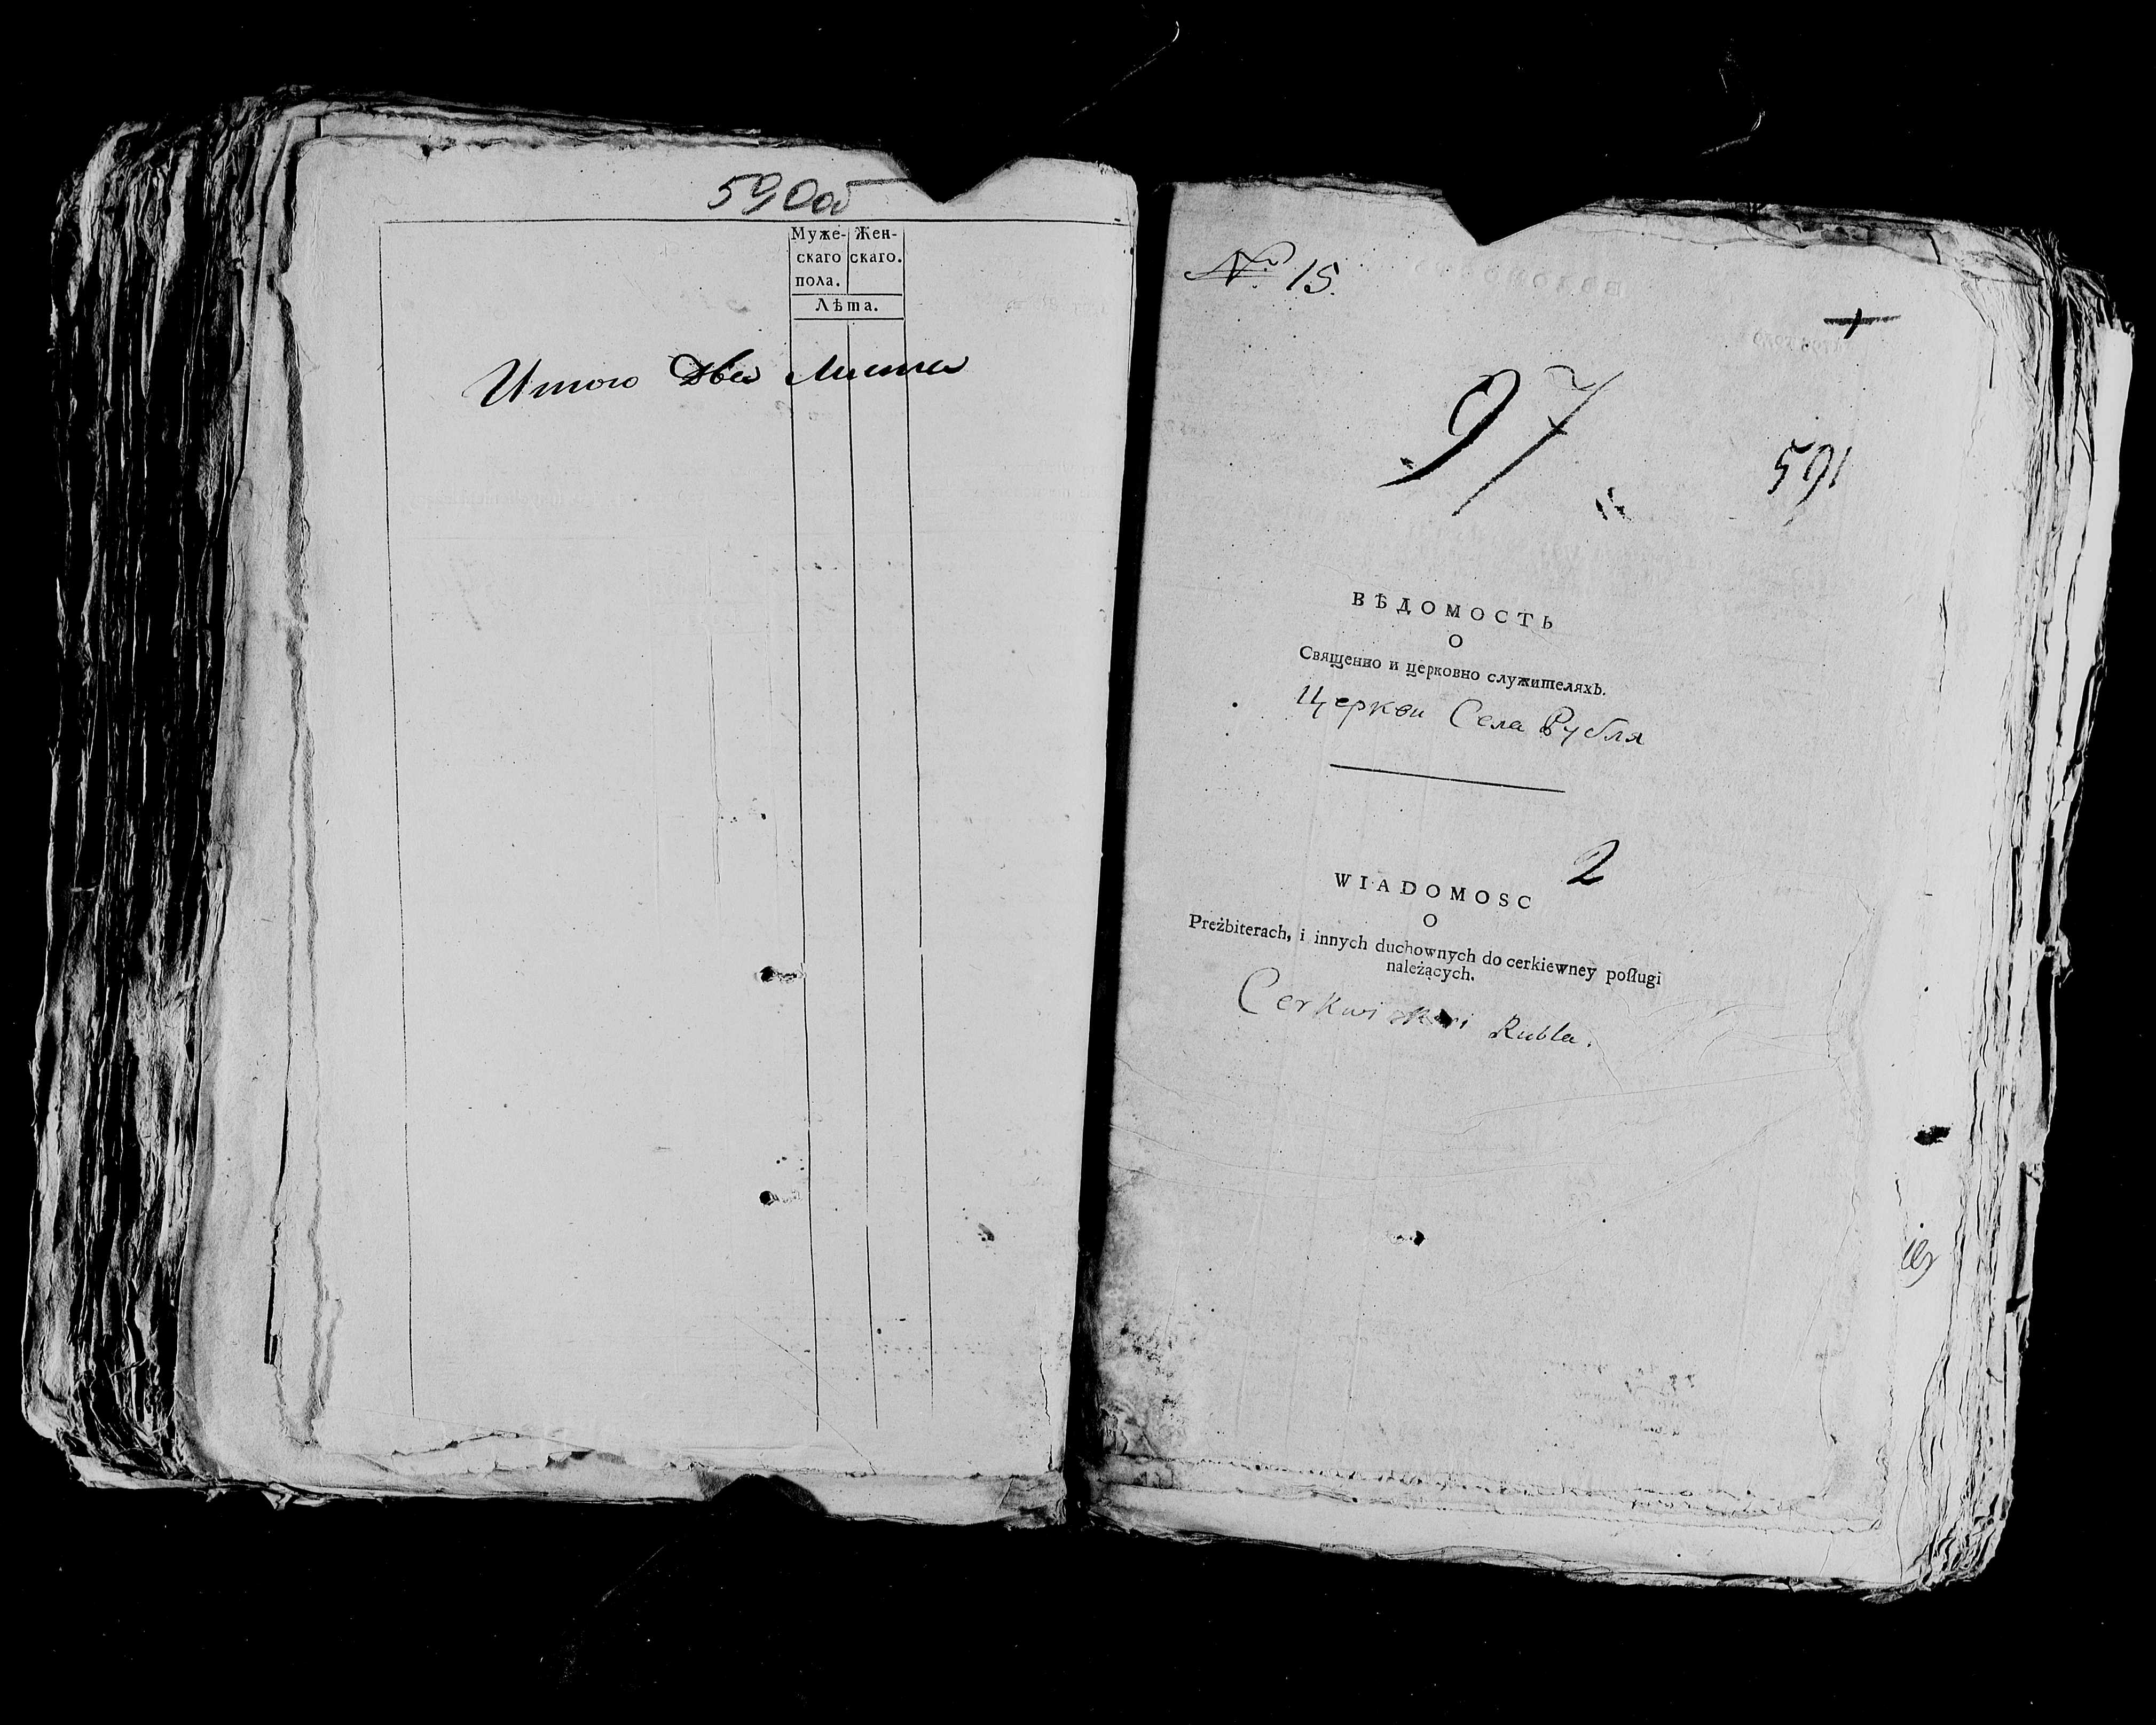 590об
Муже- Жен-
скаго скаго.
пола.
Лѣта.
Итого два листа
№ 15.
97
591
ВѢДОМОСТЬ
О
Священно и церковно служителяхъ.
Церкви Села Рубля
2
WIADOMOSC
O
Preżbiterach, i innych duchownych do cerkiewney poſługi
należących.
Cerkwi Rubla.